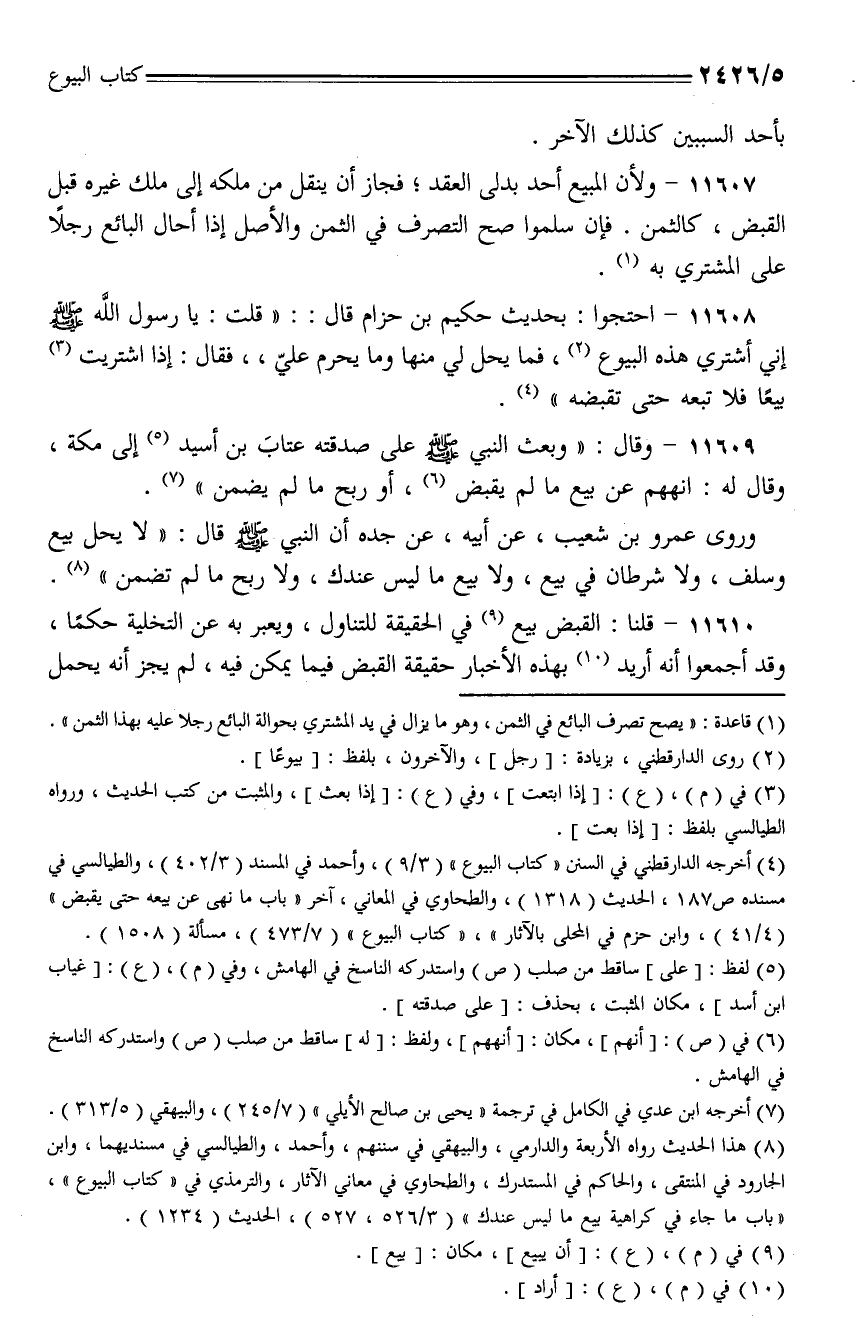 ٢٤٢٦/٥ كتاب البيوع
بأحد السببين كذلك الآخر .
١١٦٠٧ - ولأن المبيع أحد بدلى العقد ؛ فجاز أن ينقل من ملكه إلى ملك غيره قبل
القبض ، كالثمن . فإن سلموا صح التصرف في الثمن والأصل إذا أحال البائع رجلًا
على المشتري به (١) .
١١٦٠٨ - احتجوا : بحديث حكيم بن حزام قال : : « قلت : يا رسول اللَّه ﷺ
إني أشتري هذه البيوع (٢) ، فما يحل لي منها وما يحرم عليّ ، ، فقال : إذا اشتريت (٣)
بيعًا فلا تبعه حتى تقبضه » (٤) .
١١٦٠٩ - وقال : « وبعث النبي ﷺ على صدقته عتابَ بن أسيد (٥) إلى مكة ،
وقال له : انههم عن بيع ما لم يقبض (٦) ، أو ربح ما لم يضمن » (٧) .
وروى عمرو بن شعيب ، عن أبيه ، عن جده أن النبي ﷺ قال : « لا يحل بيع
وسلف ، ولا شرطان في بيع ، ولا بيع ما ليس عندك ، ولا ربح ما لم تضمن » (٨) .
١١٦١٠ - قلنا : القبض بيع (٩) في الحقيقة للتناول ، ويعبر به عن التخلية حكمًا ،
وقد أجمعوا أنه أريد (١٠) بهذه الأخبار حقيقة القبض فيما يمكن فيه ، لم يجز أنه يحمل
(١) قاعدة : « يصح تصرف البائع في الثمن ، وهو ما يزال في يد المشتري بحوالة البائع رجلا عليه بهذا الثمن » .
(٢) روى الدارقطني ، بزيادة : [ رجل ] ، والآخرون ، بلفظ : [ بيوعًا ] .
(٣) في ( م ) ، ( ع ) : [ إذا ابتعت ] ، وفي ( ع ) : [ إذا بعث ] ، والمثبت من كتب الحديث ، ورواه
الطيالسي بلفظ : [ إذا بعت ] .
(٤) أخرجه الدارقطني في السنن « كتاب البيوع » ( ٩/٣ ) ، وأحمد في المسند ( ٤٠٢/٣ ) ، والطيالسي في
مسنده ص١٨٧ ، الحديث ( ١٣١٨ ) ، والطحاوي في المعاني ، آخر « باب ما نهى عن بيعه حتى يقبض »
( ٤١/٤ ) ، وابن حزم في المحلى بالآثار » ، « كتاب البيوع » ( ٤٧٣/٧ ) ، مسألة ( ١٥٠٨ ) .
(٥) لفظ : [ على ] ساقط من صلب ( ص ) واستدركه الناسخ في الهامش ، وفي ( م ) ، ( ع ) : [ غياب
ابن أسد ] ، مكان المثبت ، بحذف : [ على صدقته ] .
(٦) في ( ص ) : [ أنهم ] ، مكان : [ أنههم ] ، ولفظ : [ له ] ساقط من صلب ( ص ) واستدركه الناسخ
في الهامش .
(٧) أخرجه ابن عدي في الكامل في ترجمة « يحيى بن صالح الأيلي » ( ٢٤٥/٧ ) ، والبيهقي ( ٣١٣/٥ ) .
(٨) هذا الحديث رواه الأربعة والدارمي ، والبيهقي في سننهم ، وأحمد ، والطيالسي في مسنديهما ، وابن
الجارود في المنتقى ، والحاكم في المستدرك ، والطحاوي في معاني الآثار ، والترمذي في « كتاب البيوع » ،
« باب ما جاء في كراهية بيع ما ليس عندك » ( ٥٢٦/٣ ، ٥٢٧ ) ، الحديث ( ١٢٣٤ ) .
(٩) في ( م ) ، ( ع ) : [ أن يبيع ] ، مكان : [ بيع ] .
(١٠) في ( م ) ، ( ع ) : [ أراد ] .